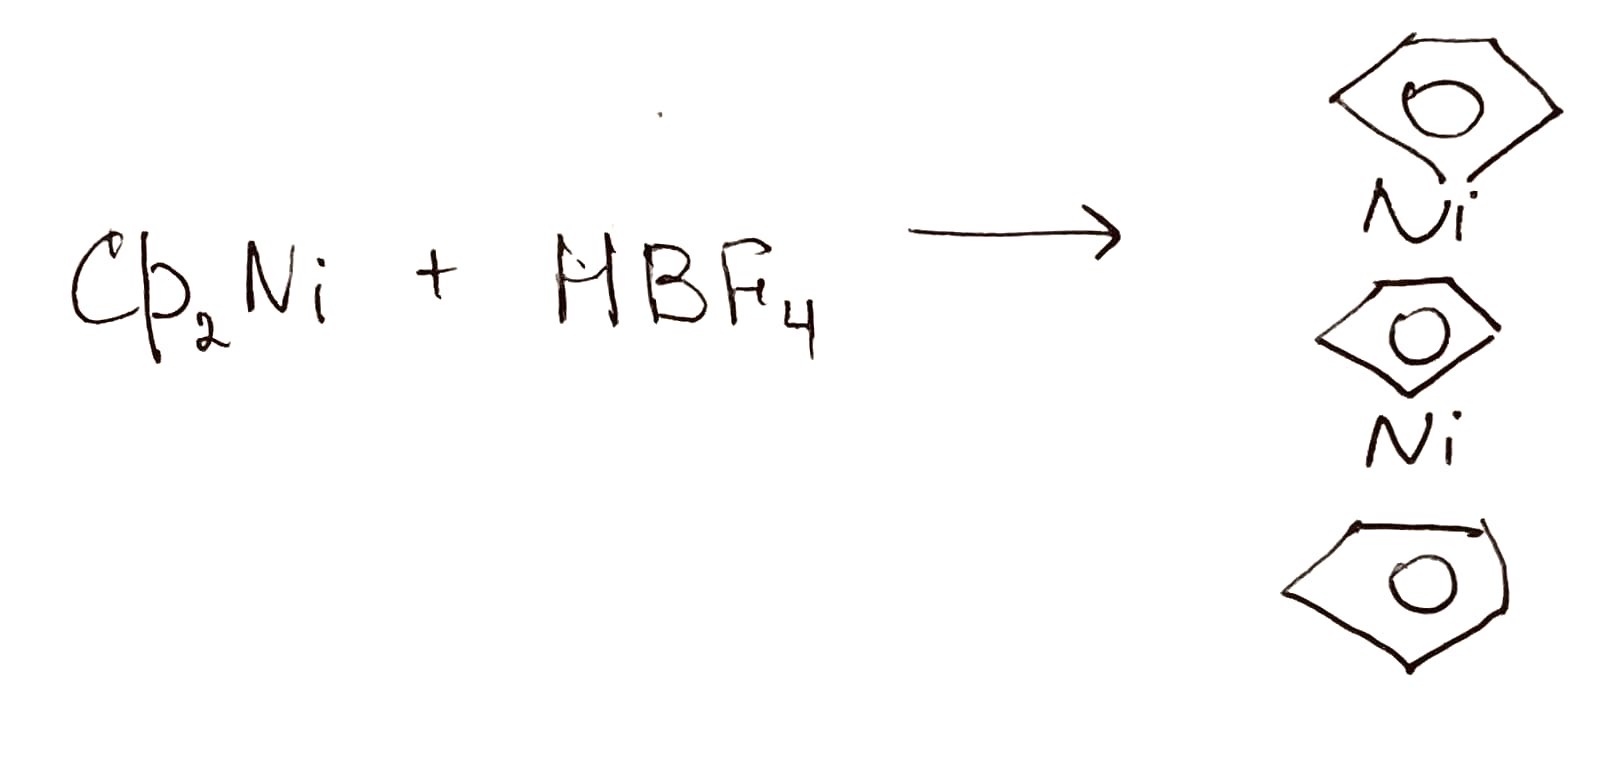 Cp₂Ni + HBF₄
Ni
Ni